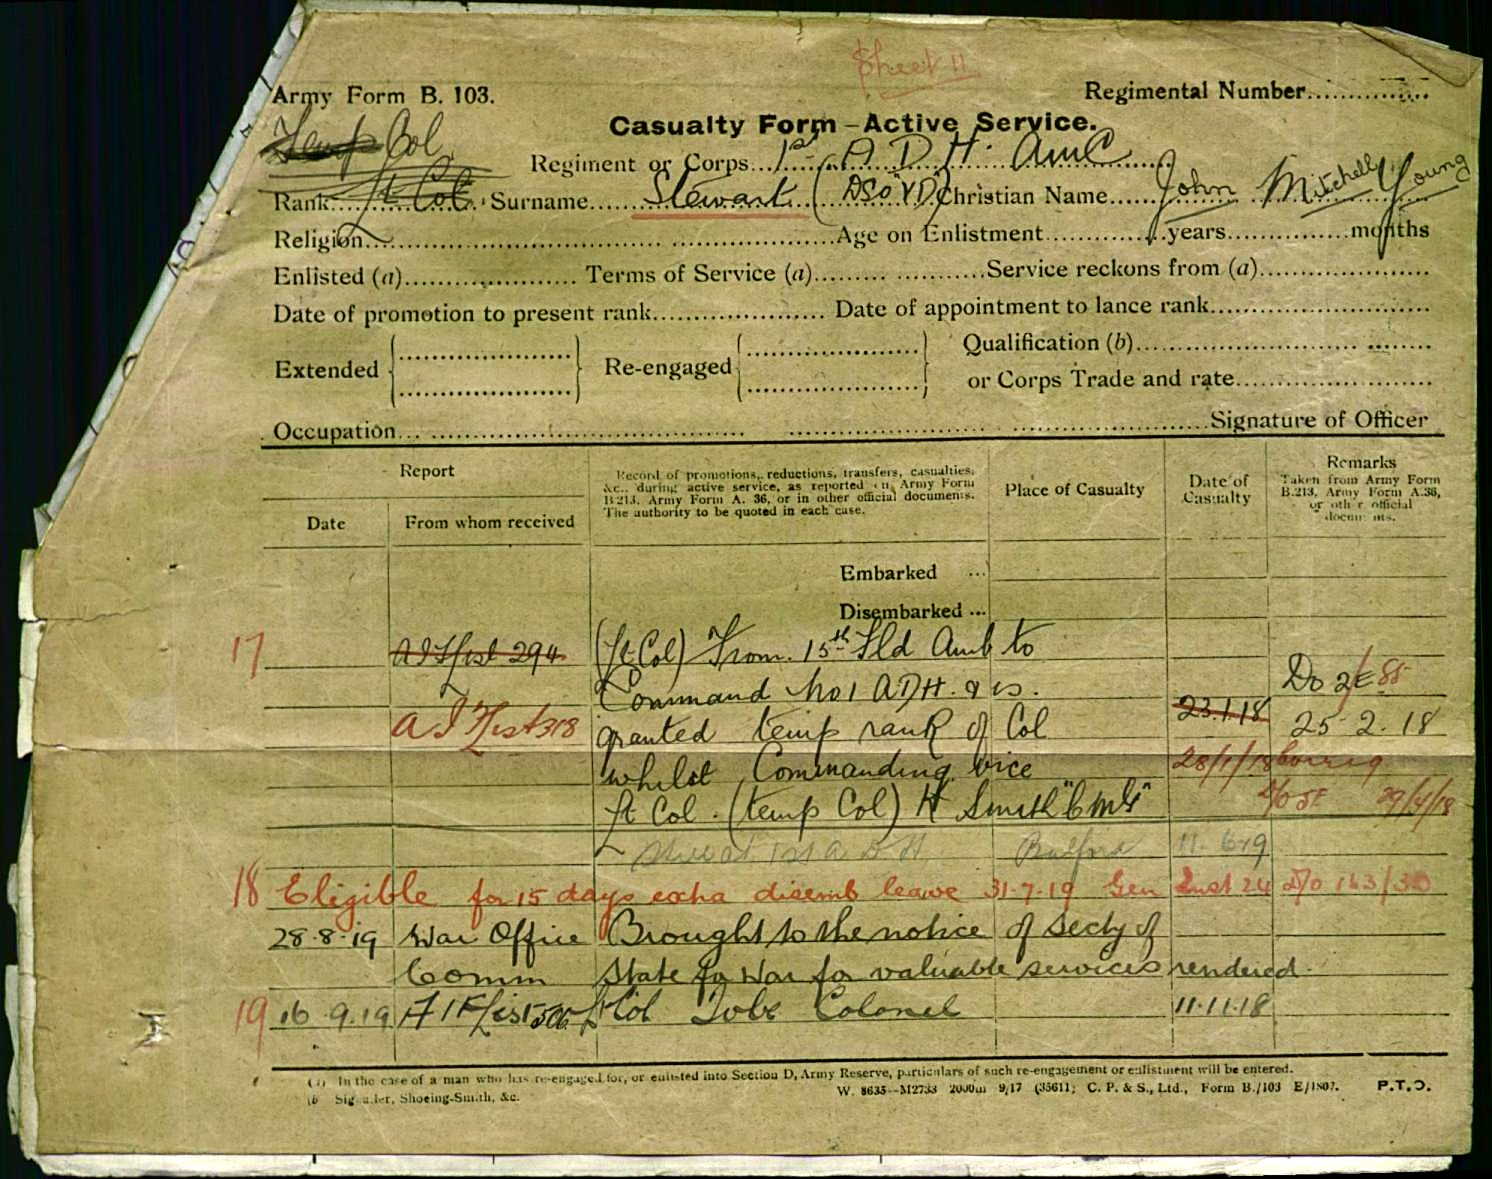 Sheet 11
Army Form B. 103.
Regimental Number
Temp Col
Casualty Form—Active Service.
Regiment or Corps 1st A D H. AMC
Rank Lt Col Surname Stewart (DSO VD) Christian Name John Mitchell Young
Religion Age on Enlistment years months
Enlisted (a) Terms of Service (a) Service reckons from (a)
Date of promotion to present rank Date of appointment to lance rank
Extended Re-engaged Qualification (b)
or Corps Trade and rate
Occupation Signature of Officer
Report
Date
From whom received
Record of promotions, reductions, transfers, casualties,
&c., during active service, as reported on Army Form
B.213, Army Form A. 36, or in other official documents.
The authority to be quoted in each case.
Place of Casualty
Date of Casualty
Remarks
Taken from Army Form
B.213, Army Form A.36,
or other official
documents.
Embarked
Disembarked
17 AIF List 294 (Lt Col) From 15th Fld Amb to
Command No 1 ADH. & is. Do 2E 85
AIF List 318 granted temp rank of Col 23.1.18 25-2.18
whilst Commanding vice 28/1/18
Lt Col. (temp Col) H Smith "CMG" 29/4/18
1st A D H Bulford 11.6.19
18 Eligible for 15 days extra disemb leave 31-7-19 Gen Inst 24 D/O 163/30
28.8.19 War Office Brought to the notice of Secty of
Comm State for War for valuable services rendered.
19 16.9.19 AIF List 506 Lt Col To be Colonel 11.11.18
(a) In the case of a man who has re-engaged for, or enlisted into Section D, Army Reserve, particulars of such re-engagement or enlistment will be entered.
(b Signaller, Shoeing-Smith, &c.
W. 8635—M2733 2000m 9/17 (35611) C. P. & S., Ltd., Form B./103 E/1807.
P.T.O.